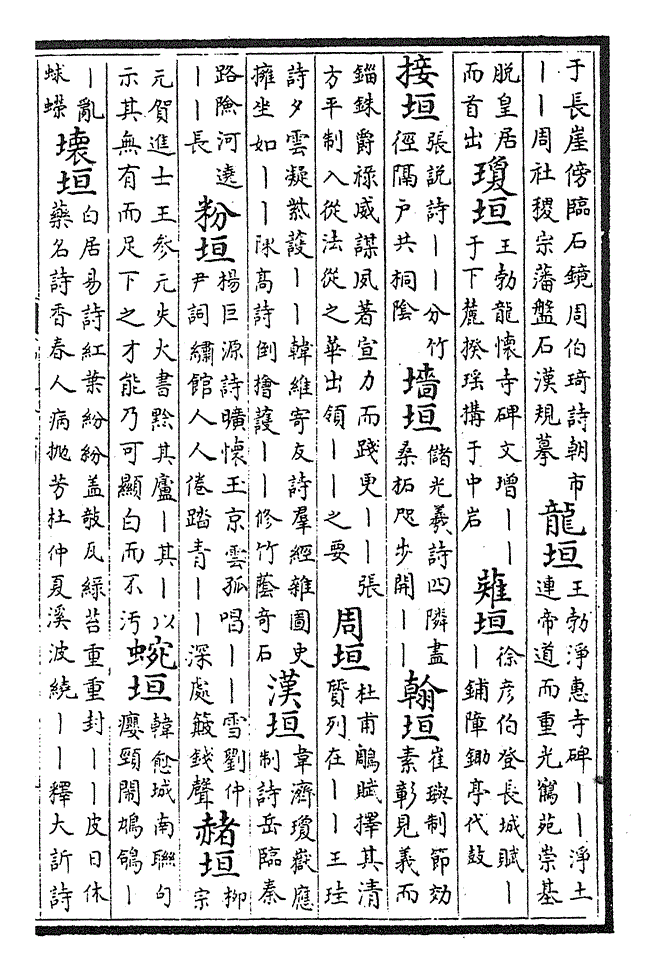 于長崖傍臨石鏡周伯琦詩朝市
丨丨周社稷宗藩盤石漢規摹
龍垣
王勃淨惠寺碑丨丨淨土
連帝道而重光鶴苑崇基
脫皇居
而首出
瓊垣
王勃龍懷寺碑文增丨丨
于下麓揆瑤搆于中岩
薙垣
徐彦伯登長城賦丨
丨鋪障鋤亭代鼓
接垣
張說詩丨丨分竹
徑隔户共桐陰
墻垣
儲光羲詩四隣盡
桑柘咫步開丨丨
翰垣
崔璵制節効
素彰見義而
錙銖爵祿威謀夙著宣力而踐更丨丨張
方平制入從法從之華出領丨丨之要
周垣
杜甫鵰賦擇其清
質列在丨丨王珪
詩夕雲凝護丨丨韓維寄友詩羣經雜圖史
擁坐如丨丨陳高詩倒擔護丨丨修竹蔭奇石
漢垣
韋濟瓊嶽應
制詩岳臨秦
路險河遶
丨丨長
粉垣
楊巨源詩曠懷玉京雲孤唱丨丨雪劉仲
尹詞繡館人人倦踏青丨丨深處簸錢聲
赭垣
柳
宗
元賀進士王參元失火書黔其廬丨其丨以
示其無有而足下之才能乃可顯白而不汚
蜿垣
韓愈城南聯句
癭頸閙鳩鴿丨
丨亂
蛷蠑
壞垣
白居易詩紅葉紛紛盖欹瓦緑苔重重封丨丨皮日休
藥名詩香春人病抛芳杜仲夏溪波繞丨丨釋大訢詩